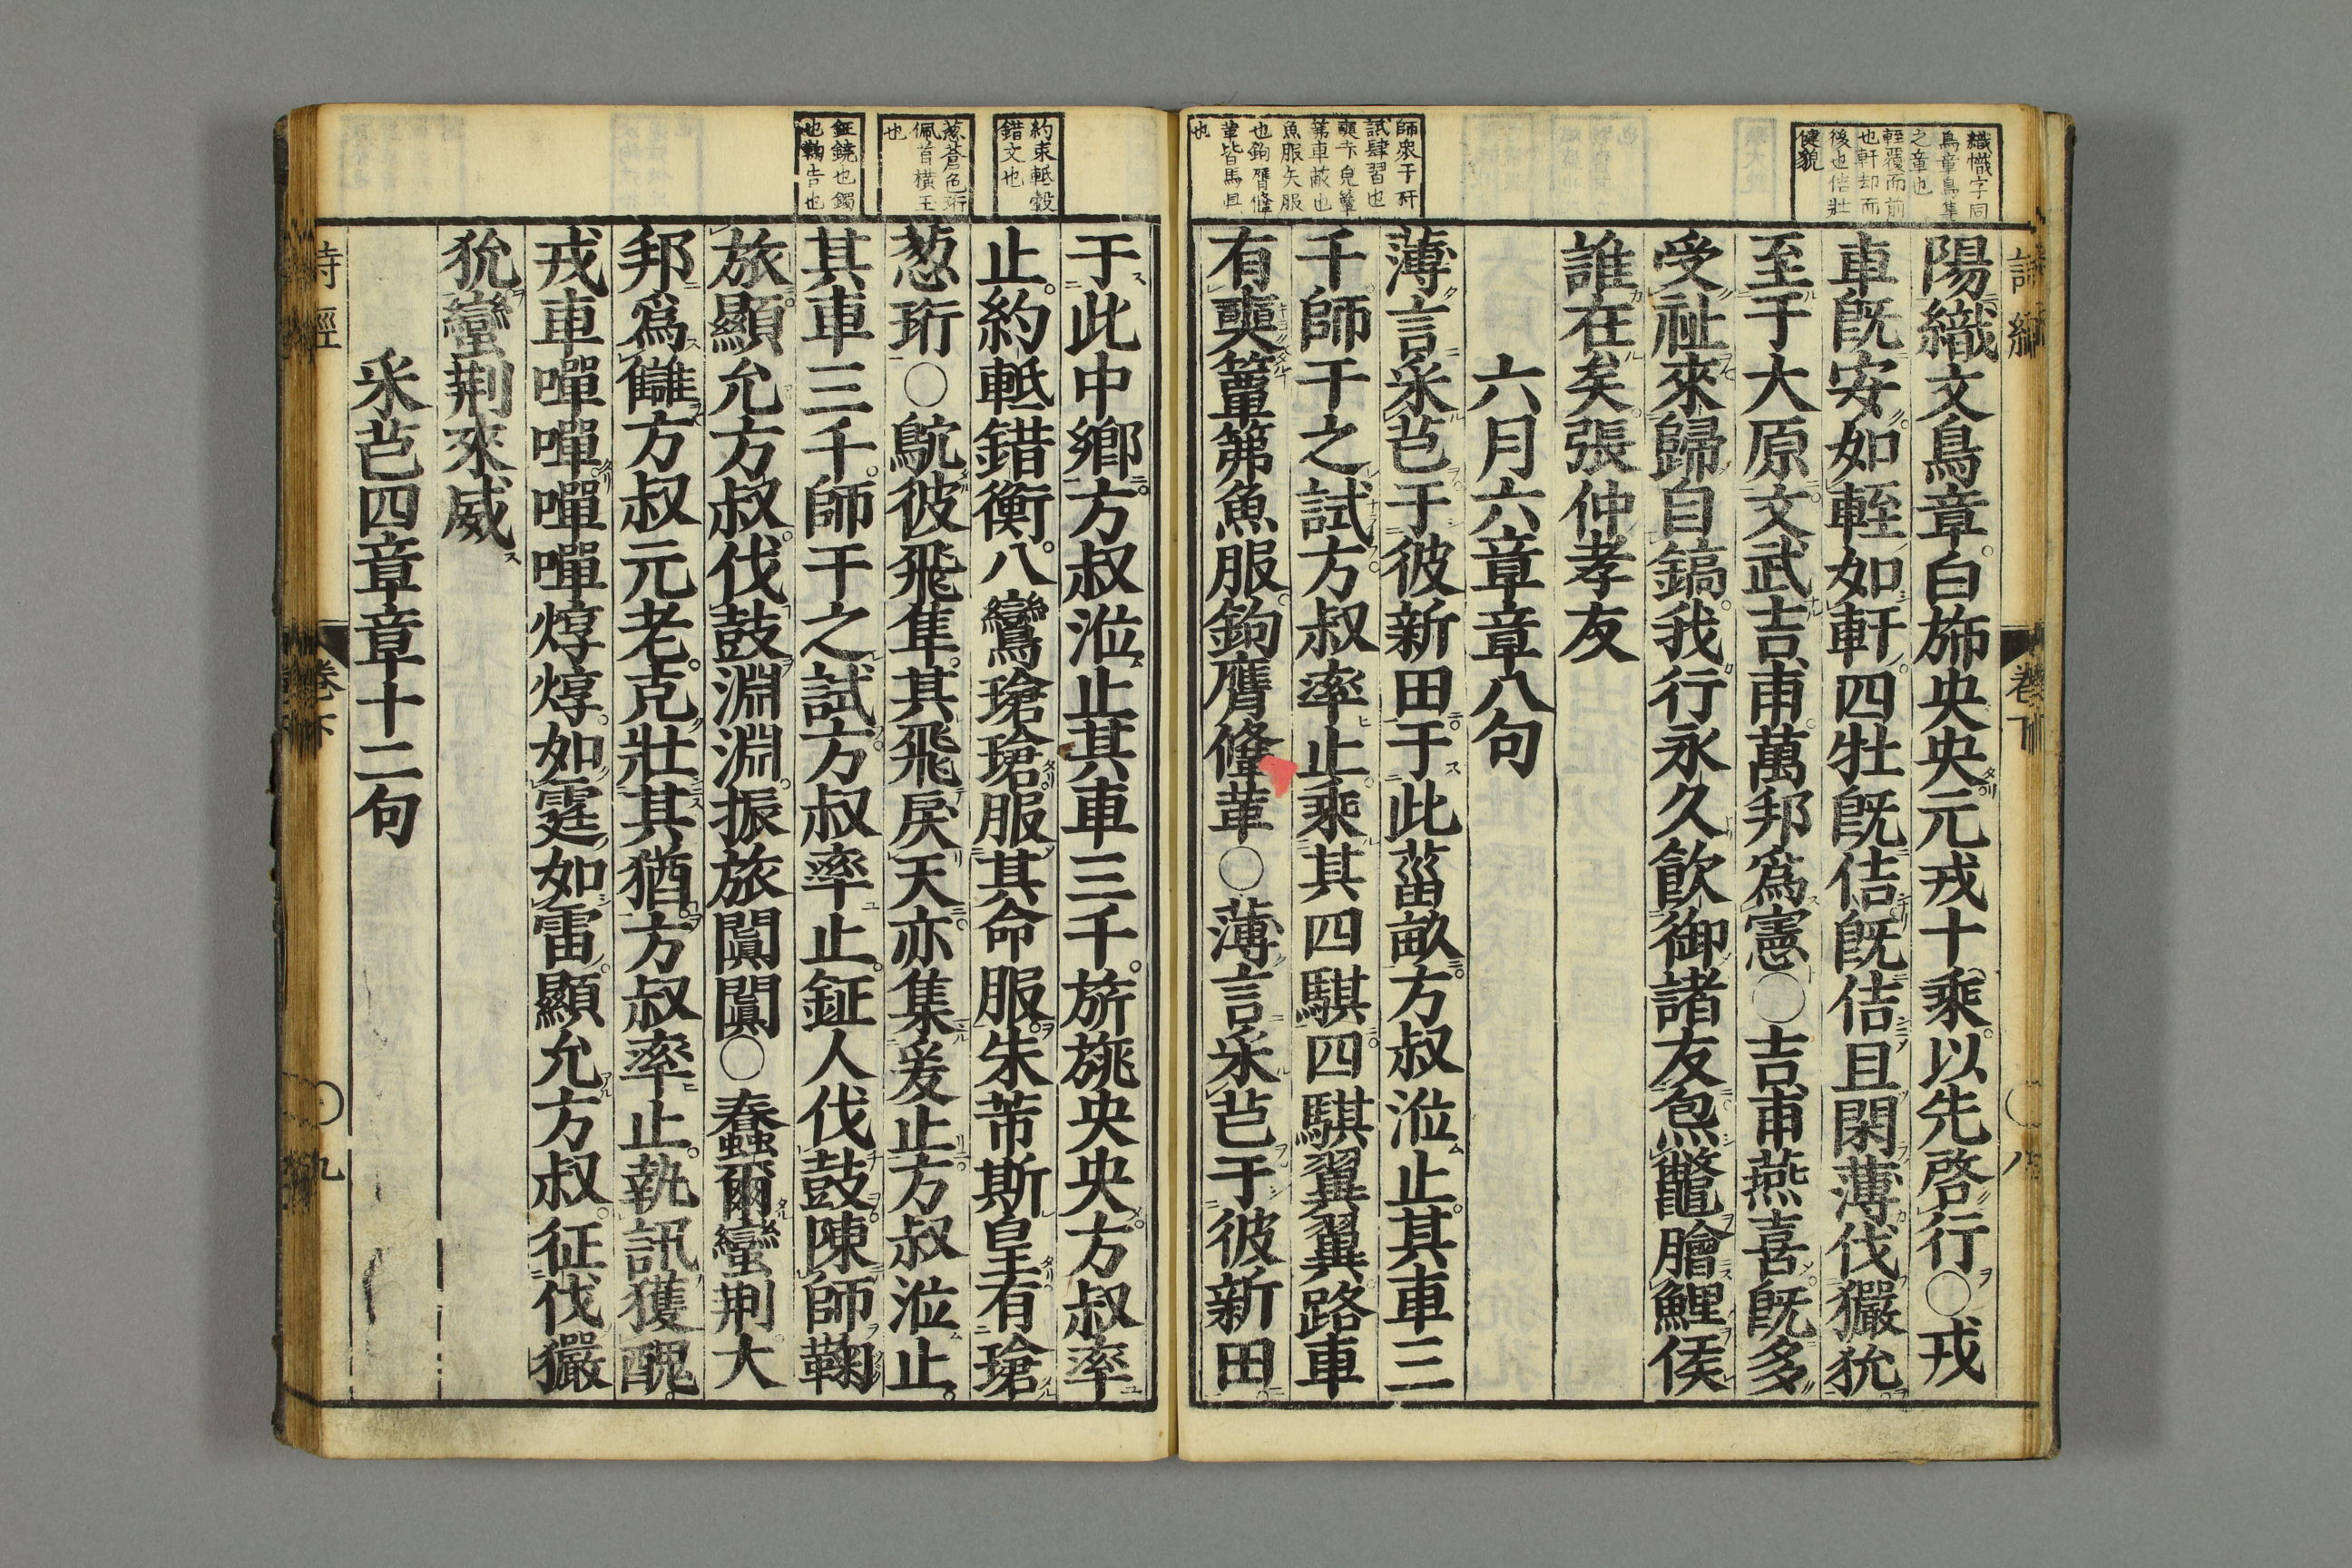 織幟字同
鳥章鳥隼
之章也
輊覆而前
也軒却而
後也佶壯
健貌
師衆干扞
試肄習也
奭赤皃簟
茀車蔽也
魚服矢服
也鉤膺鞗
革皆馬具
也
陽織文鳥章白旆央央元戎十乘以先啓行○戎
車既安如輊如軒四牡既佶既佶且閑薄伐玁狁
至于大原文武吉甫萬邦爲憲○吉甫燕喜既多
受祉來歸自鎬我行永久飲御諸友炰鼈膾鯉侯
誰在矣張仲孝友
六月六章章八句
薄言采芑于彼新田于此菑畝方叔涖止其車三
千師干之試方叔率止乘其四騏四騏翼翼路車
有奭簟茀魚服鉤膺鞗革○薄言采芑于彼新田
約束軝轂
錯文也
葱蒼色珩
佩首橫玉
也
鉦鐃也鐲
也鞠告也
于此中鄉方叔涖止其車三千旂旐央央方叔率
止約軝錯衡八鸞瑲瑲服其命服朱芾斯皇有瑲
葱珩○鴥彼飛隼其飛戾天亦集爰止方叔涖止
其車三千師干之試方叔率止鉦人伐鼓陳師鞠
旅顯允方叔伐鼓淵淵振旅闐闐○蠢爾蠻荆大
邦爲讎方叔元老克壯其猶方叔率止執訊獲醜
戎車嘽嘽嘽嘽焞焞如霆如雷顯允方叔征伐玁
狁蠻荆來威
采芑四章章十二句
詩經
卷下
九